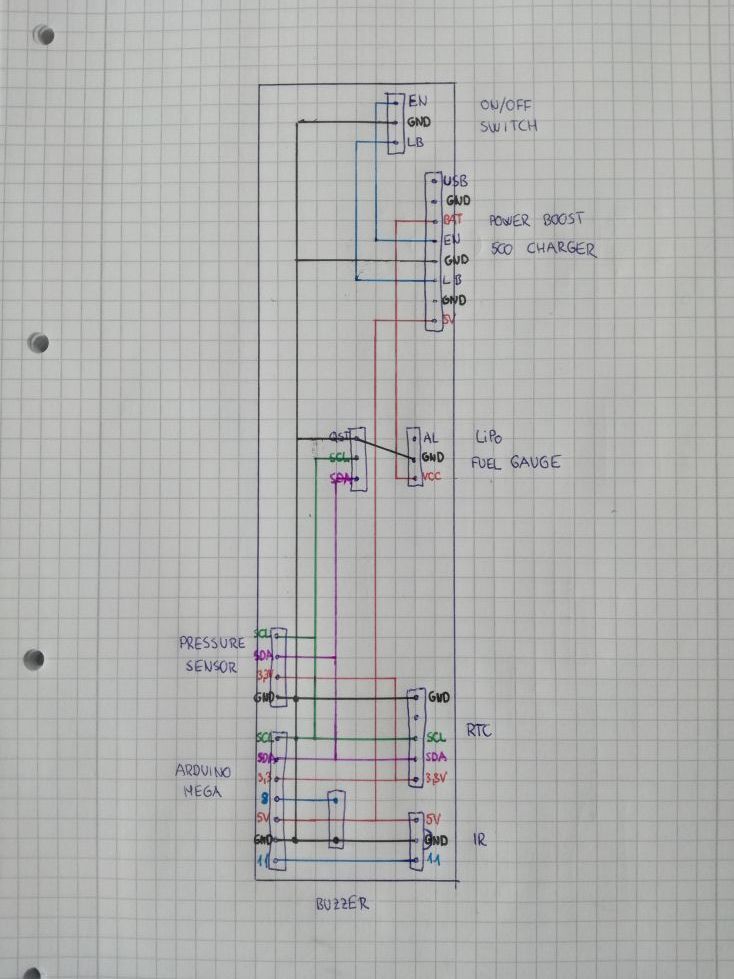 EN
GND
LB
ON/OFF
SWITCH
USB
GND
BAT
EN
GND
LB
GND
5V
POWER BOOST
500 CHARGER
QST
SCL
SDA
AL
GND
VCC
LiPo
FUEL GAUGE
PRESSURE
SENSOR
SCL
SDA
3,3V
GND
GND
SCL
SDA
3,3V
RTC
ARDUINO
MEGA
SCL
SDA
3,3
8
5V
GND
11
5V
GND
11
IR
BUZZER